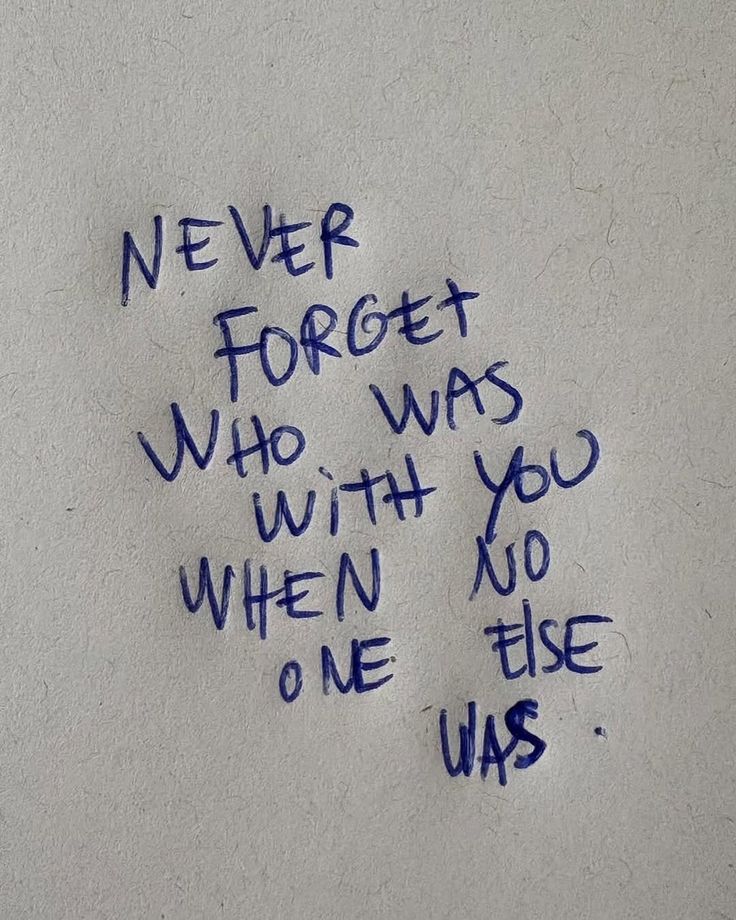 NEVER
FORGET
WHO WAS
WiTH YOU
WHEN NO
ONE ElSE
WAS.